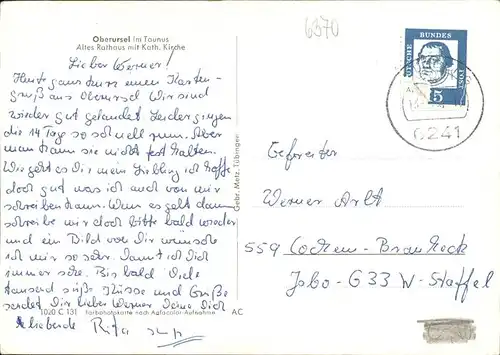 6370
Oberursel im Taunus
Altes Rathaus mit Kath. Kirche
Lieber Werner!
Heute ganz kurz einen Karten-
gruß aus Oberursel Wir sind
wieder gut gelandet Leider gingen
die 14 Tage so schnell rum. Aber
man kann sie nicht fest halten.
Wie geht es Dir mein Liebling ich hoffe
doch gut was ich auch von mir
schreiben kann. Wenn es geht dann
schreibe mir doch bitte bald wieder
und ein Bild von Dir wünsche
ich mir so sehr. Damit ich Dich
immer sehe. Bis bald Viele
tausend süße Küsse und Grüße
sendet Dir lieber Werner Deine Dich
liebende Rita
1020 C 131 Farbphotokarte nach Agfacolor-Aufnahme AC
Gebr. Metz, Tübingen
DEUTSCHE BUNDES
5
6241
Gefreiter
Werner Arlt
559 Cochem-Brauheck
Jabo-G 33 W-Staffel